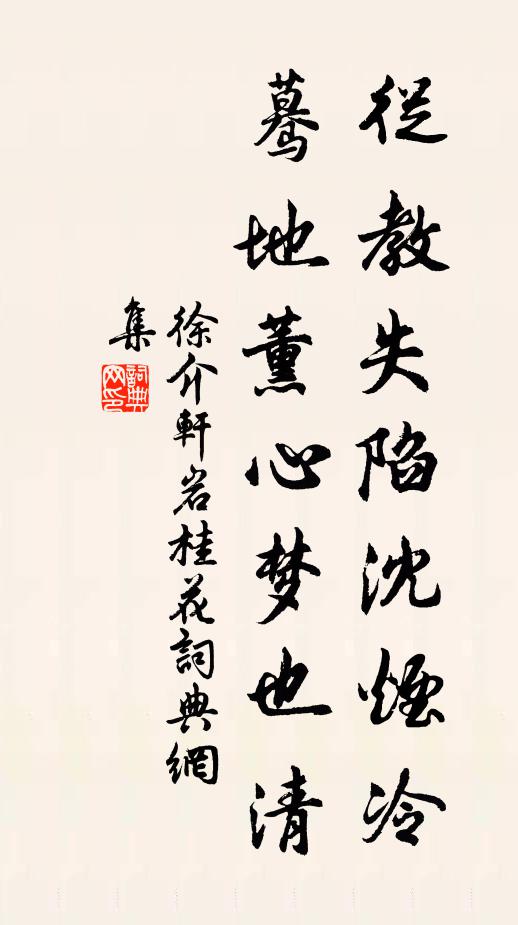 從教失陷沈煙冷
驀地薰心梦也清
徐介軒岩桂花詞典網
集
詞典网印